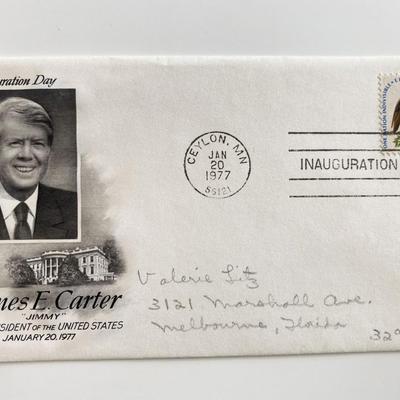 uration Day
CEYLON, MN
JAN
20
1977
56121
INAUGURATION
ONE NATION INDIVISIBLE • E
mes E. Carter
"JIMMY"
SIDENT OF THE UNITED STATES
JANUARY 20, 1977
Valerie Litz
3121 Marshall Ave.
Melbourne, Florida
329